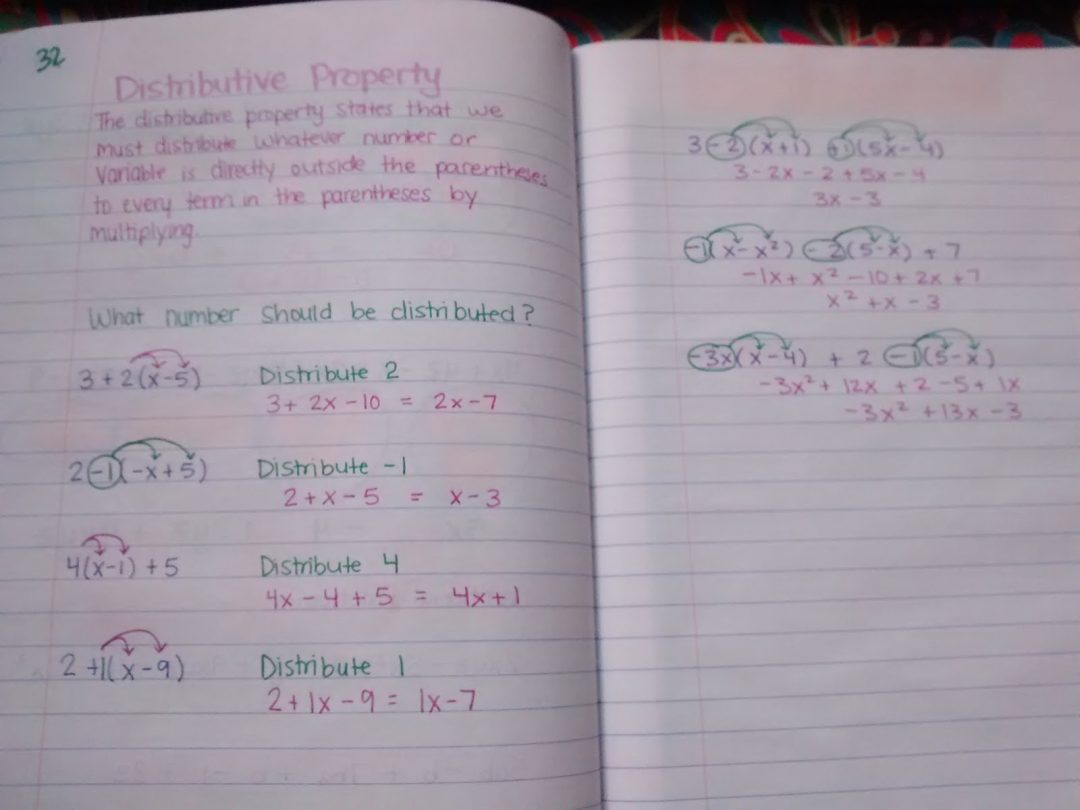 32
Distributive Property
The distributive property states that we
must distribute whatever number or
variable is directly outside the parentheses
to every term in the parentheses by
multiplying.
What number should be distributed?
3 + 2(x-5) Distribute 2
3+ 2x -10 = 2x-7
2-1(-x+5) Distribute -1
2+x-5 = x-3
4(x-1) +5 Distribute 4
4x - 4 + 5 = 4x+1
2 +1(x-9) Distribute 1
2+1x-9 = 1x-7
3-2(x+1) +1(5x-4)
3-2x-2+5x-4
3x-3
-1(x-x²) -2(5-x) + 7
-1x+ x² -10+ 2x +7
x² +x - 3
-3x(x-4) + 2 -1(5-x)
-3x²+ 12x +2 -5+ 1x
-3x² +13x -3